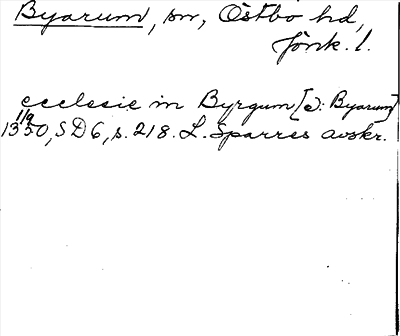 Byarum, sn, Östbo hd,
Jönk. l.
ecclesie in Byrgum [ɔ: Byarum]
1/9
1350, SD 6, s. 218. L. Sparres avskr.